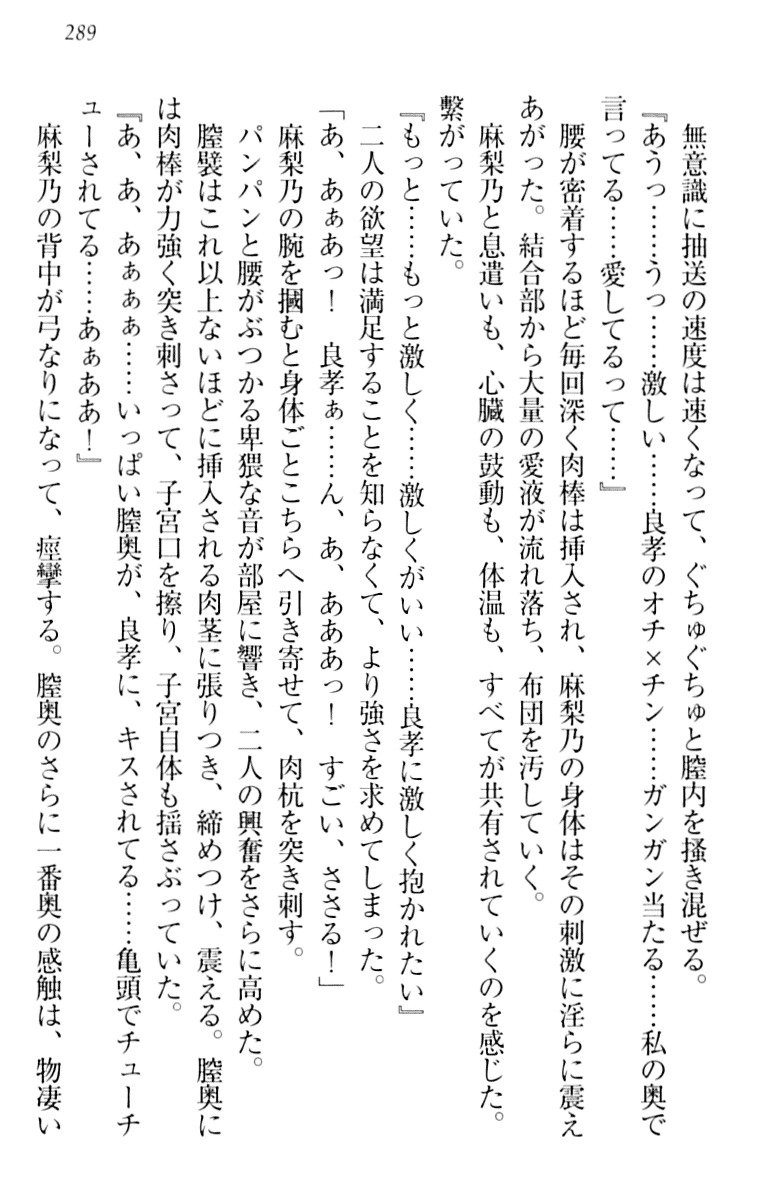 289
無意識に抽送の速度は速くなって、ぐちゅぐちゅと膣内を掻き混ぜる。
『あうっ……うっ……激しい……良孝のオチ×チン……ガンガン当たる……私の奥で
言ってる……愛してるって……』
腰が密着するほど毎回深く肉棒は挿入され、麻梨乃の身体はその刺激に淫らに震え
あがった。結合部から大量の愛液が流れ落ち、布団を汚していく。
麻梨乃と息遣いも、心臓の鼓動も、体温も、すべてが共有されていくのを感じた。
繋がっていた。
『もっと……もっと激しく……激しくがいい……良孝に激しく抱かれたい』
二人の欲望は満足することを知らなくて、より強さを求めてしまった。
「あ、あぁあっ！　良孝ぁ……ん、あ、あああっ！　すごい、ささる！」
麻梨乃の腕を摑むと身体ごとこちらへ引き寄せて、肉杭を突き刺す。
パンパンと腰がぶつかる卑猥な音が部屋に響き、二人の興奮をさらに高めた。
膣襞はこれ以上ないほどに挿入される肉茎に張りつき、締めつけ、震える。膣奥に
は肉棒が力強く突き刺さって、子宮口を擦り、子宮自体も揺さぶっていた。
『あ、あ、あぁぁぁ……いっぱい膣奥が、良孝に、キスされてる……亀頭でチューチ
ューされてる……あぁああ！』
麻梨乃の背中が弓なりになって、痙攣する。膣奥のさらに一番奥の感触は、物凄い